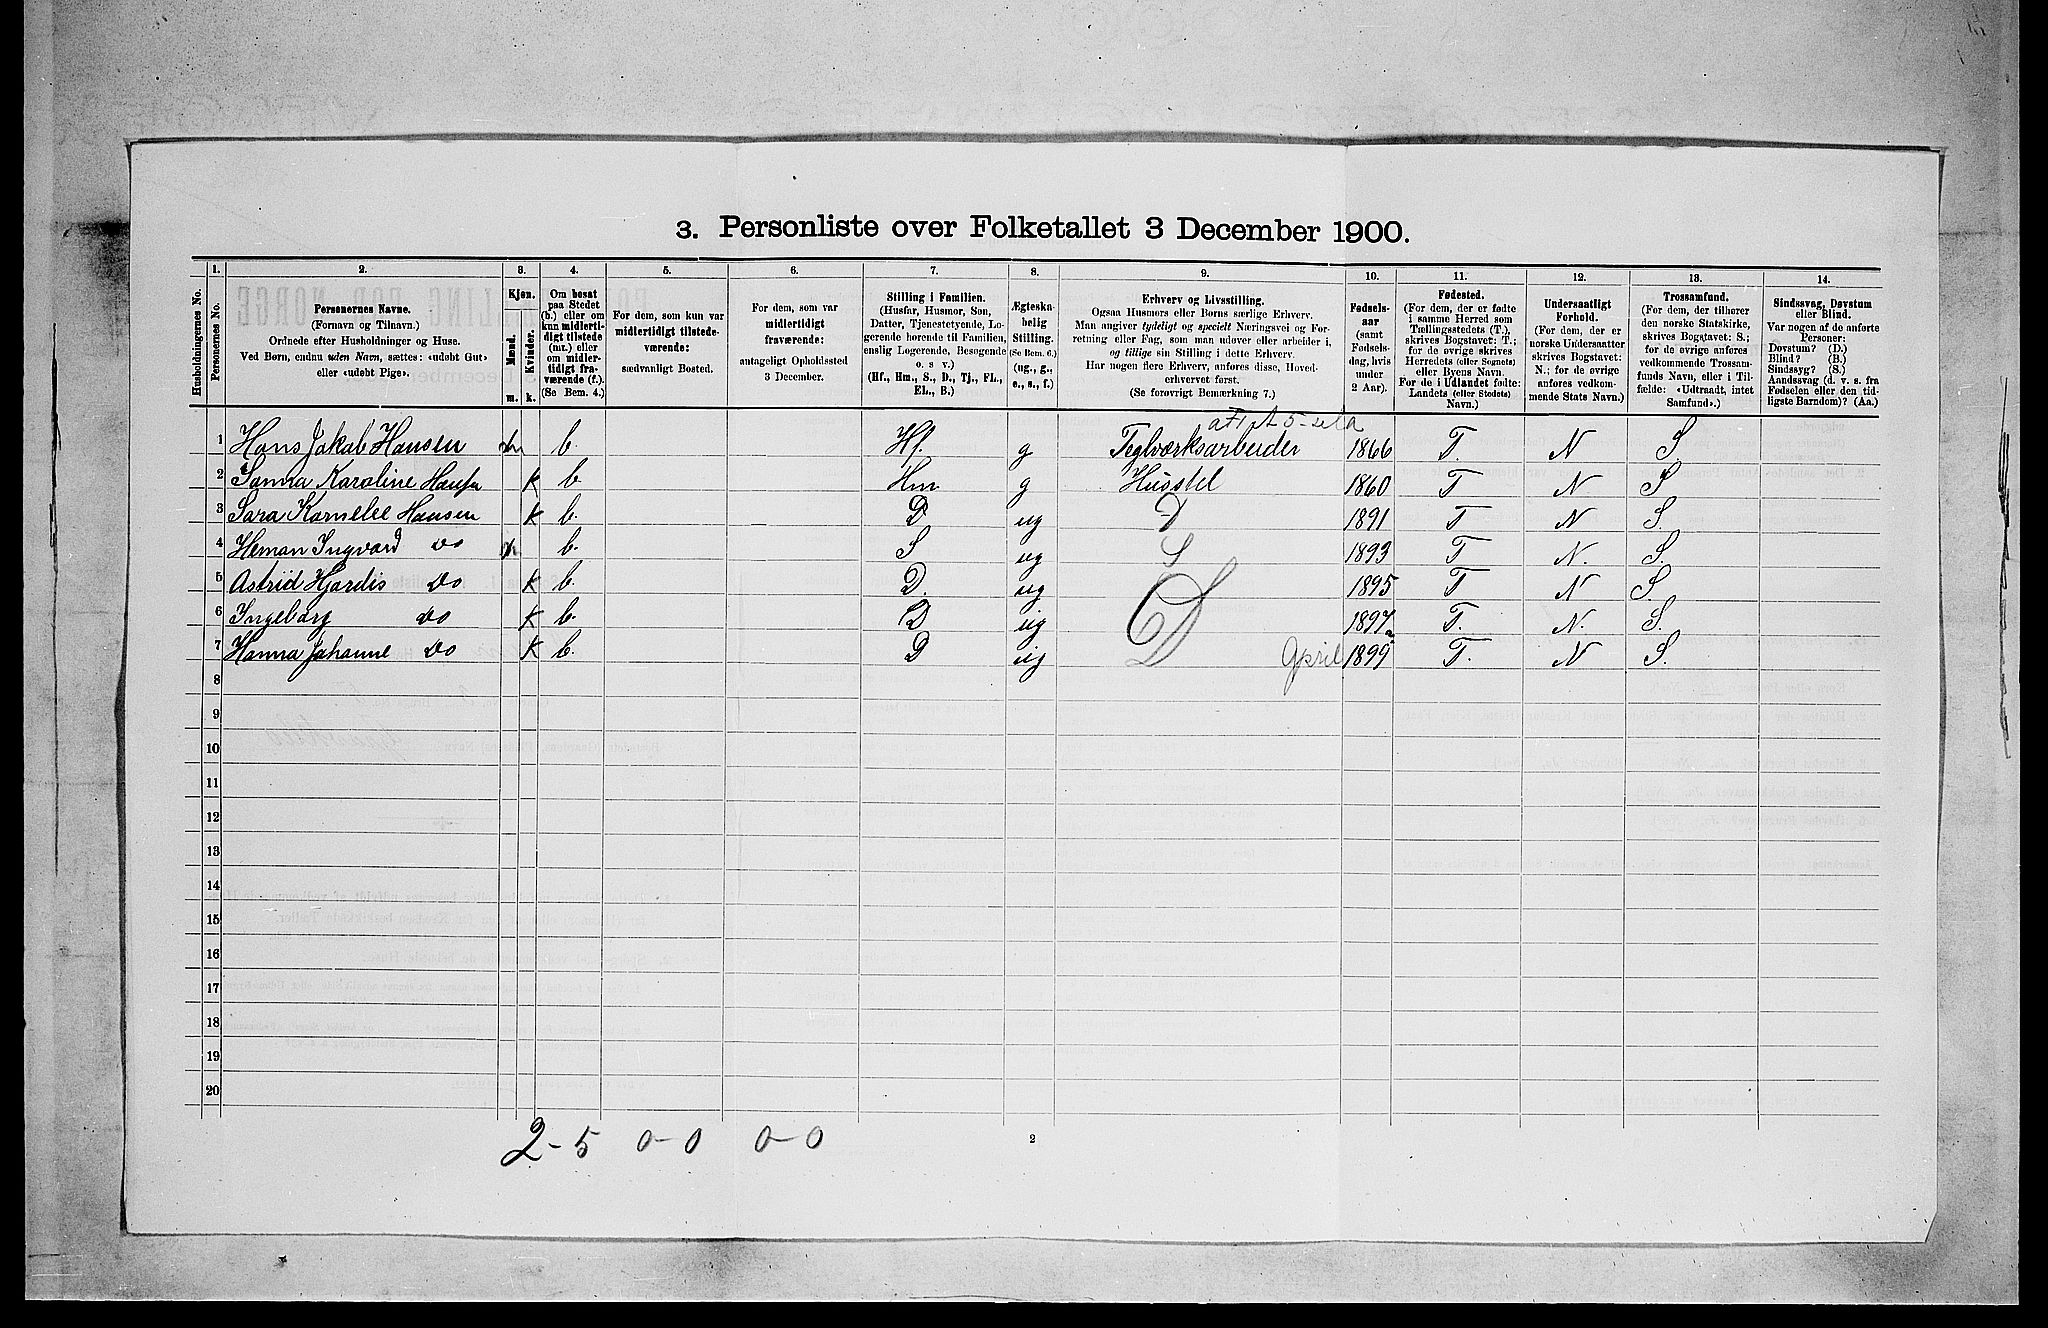 3. Personliste over Folketallet 3 December 1900.
Husholdningernes No.
1.
Personernes No.
2.
Personernes Navne.
(Fornavn og Tilnavn.)
Ordnede efter Husholdninger og Huse.
Ved Børn, endnu uden Navn, sættes: «udøbt Gut»
eller «udøbt Pige».
3.
Kjøn.
Mænd.
Kvinder.
m.
k.
4.
Om bosat
paa Stedet
(b.) eller om
kun midlerti-
digt tilstede
(mt.) eller
om midler-
tidigt fra-
værende (f.).
(Se Bem. 4.)
5.
For dem, som kun var
midlertidigt tilstede-
værende:
sædvanligt Bosted.
6.
For dem, som var
midlertidigt
fraværende:
antageligt Opholdssted
3 December.
7.
Stilling i Familien.
(Husfar, Husmor, Søn,
Datter, Tjenestetyende, Lo-
gerende hørende til Familien,
enslig Logerende, Besøgende
o. s v.)
(Hf., Hm., S., D., Tj., FL.,
EL., B.)
8.
Ægteska-
belig
Stilling.
(Se Bem. 6.)
(ug., g.,
e., s., f.)
9.
Erhverv og Livsstilling.
Ogsaa Husmors eller Børns særlige Erhverv.
Man angiver tydeligt og specielt Næringsvei og For-
retning eller Fag, som man udøver eller arbeider i,
og tillige sin Stilling i dette Erhverv.
Har nogen flere Erhverv, anføres disse, Hoved-
erhvervet først.
(Se forøvrigt Bemærkning 7.)
10.
Fødsels-
aar
(samt
Fødsels-
dag, hvis
under
2 Aar).
11.
Fødested.
(For dem, der er fødte
i samme Herred som
Tællingsstedets (T.),
skrives Bogstavet: T.;
for de øvrige skrives
Herredets (eller Sognets)
eller Byens Navn.
For de i Udlandet fødte:
Landets (eller Stedets)
Navn.)
12.
Undersaatligt
Forhold.
(For dem, der er
norske Undersaatter
skrives Bogstavet:
N.; for de øvrige
anføres vedkom-
mende Stats Navn.)
13.
Trossamfund.
(For dem, der tilhører
den norske Statskirke,
skrives Bogstavet: S.;
for de øvrige anføres
vedkommende Trossam-
funds Navn, eller i Til-
fælde: «Udtraadt, intet
Samfund».)
14.
Sindssvag, Døvstum
eller Blind.
Var nogen af de anførte
Personer:
Døvstum? (D.)
Blind? (B.)
Sindssyg? (S.)
Aandssvag (d. v. s. fra
Fødselen eller den tid-
ligste Barndom)? (Aa.)
1 Hans Jakob Hansen m b. Hf. g Teglværksarbeider 1866 T. N S.
2 Sanna Karoline Hansen K b. Hm. g Husstel 1860 T N S
3 Sara Kornelee Hansen K b. D ug D 1891 T N S.
4 Heman Ingvard do m b. S ug S 1893 T N. S.
5 Astriid Hjordis do K b. D. ug 1895 T N S.
6 Ingeborg do K b. D ug D 1897 T. N. S.
7 Hanna Johanne do K b. D ug April 1899 T. N S.
8
9
10
11
12
13
14
15
16
17
18
19
20
2-5 0-0 0-0
2